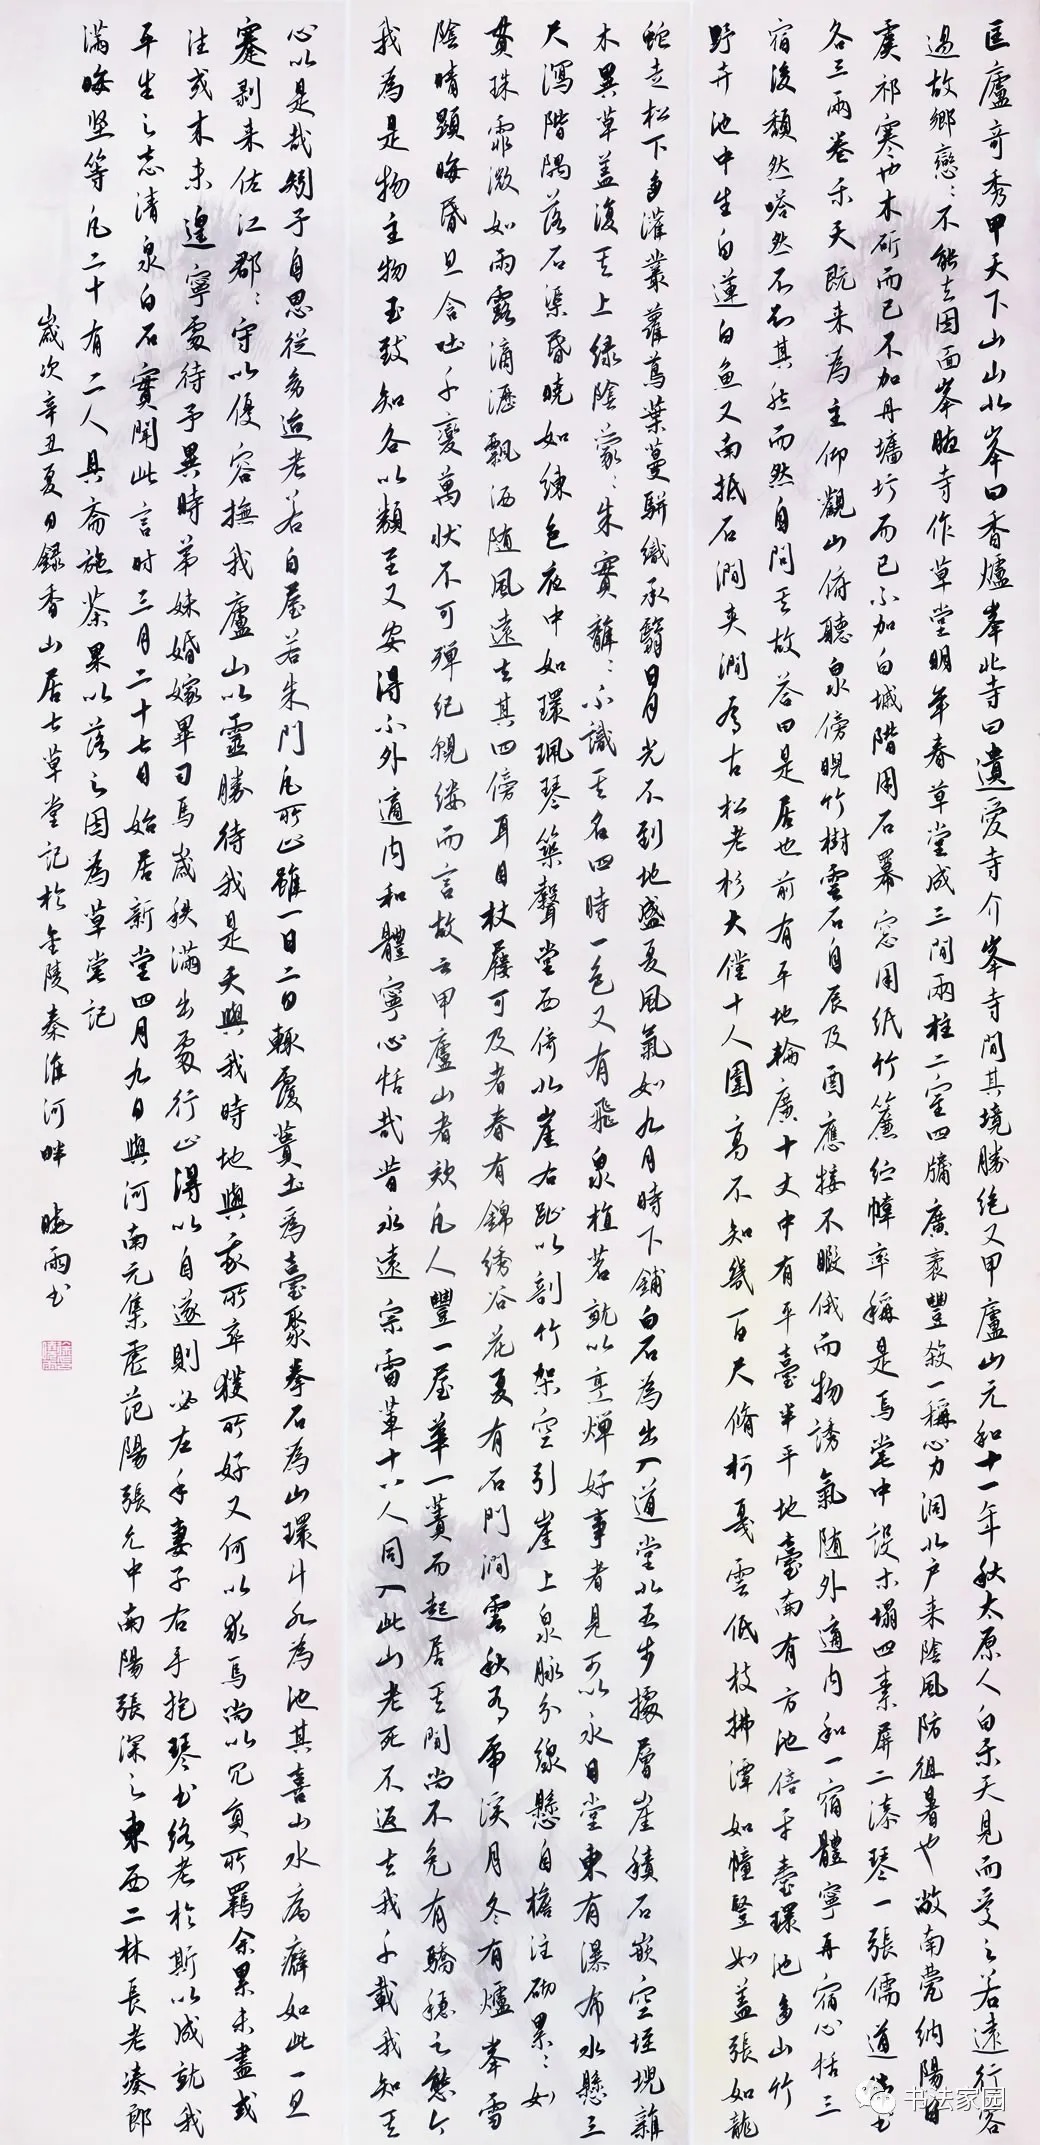 匡廬奇秀甲天下山山北峯曰香爐峯北寺曰遺愛寺介峯寺間其境勝絕又甲廬山元和十一年秋太原人白樂天見而愛之若遠行客
過故鄉戀〻不能去因面峯腋寺作草堂明年春草堂成三間兩柱二室四牖廣袤豐殺一稱心力洞北戶來陰風防徂暑也敞南甍納陽日
虞祁寒也木斫而已不加丹墻圬而已不加白城階用石冪窓用紙竹簾紵幃率稱是焉堂中設木榻四素屏二漆琴一張儒道佛書
各三兩卷樂天既來為主仰觀山俯聽泉傍睨竹樹雲石自辰及酉應接不暇俄而物誘氣随外適內和一宿體寧再宿心恬三
宿後頹然嗒然不知其然而然自問其故答曰是居也前有平地輪廣十丈中有平臺半平地臺南有方池倍平臺環池多山竹
野卉池中生白蓮白魚又南抵石澗夾澗有古松老杉大僅十人圍高不知幾百尺脩柯戛雲低枝拂潭如幢豎如蓋張如龍
蛇走松下多灌叢蘿蔦葉蔓駢織承翳日月光不到地盛夏風氣如九月時下鋪白石為出入道堂北五步據層崖積石嵌空垤堄雜
木異草蓋復其上綠陰蒙〻朱實離〻不識其名四時一色又有飛泉植茗就以烹燀好事者見可以永日堂東有瀑布水懸三
尺瀉階隅落石渠昏曉如練色夜中如環珮琴築聲堂西倚北崖右趾以剖竹架空引崖上泉脉分線懸自檐注砌累〻如
貫珠霏微如雨露滴瀝飄洒随風遠去其四傍耳目杖屨可及者春有錦绣谷花夏有石門澗雲秋有虎溪月冬有爐峯雪
陰晴顯晦昏旦含吐千變萬狀不可殫紀覼縷而言故云甲廬山者欤凡人豐一屋華一簣而起居其間尚不免有驕穩之態今
我為是物主物至致知各以類至又安得不外適內和體寧心恬哉昔永遠宗雷輩十八人同入此山老死不返去我千載我知其
心以是哉矧予自思從幼迨老若白屋若朱門凡所止雖一日二日輒覆簣土為臺聚拳石為山環斗水為池其喜山水病癖如此一旦
蹇剥来佐江郡〻守以優容撫我廬山以靈勝待我是天與我時地與我所卒獲所好又何以求焉尚以冗員所羈余累未盡或
往或来未遑寧處待予異時弟妹婚嫁畢司馬歲秩滿出處行止得以自遂則必左手妻子右手抱琴书終老於斯以成就我
平生之志清泉白石實聞此言时三月二十七日始居新堂四月九日與河南元集虛范陽張允中南陽張深之東西二林長老湊郎
滿晦坚等凡二十有二人具斋施茶果以落之因為草堂記
歲次辛丑夏日錄香山居士草堂記於金陵秦淮河畔 曉雨书
书法家园